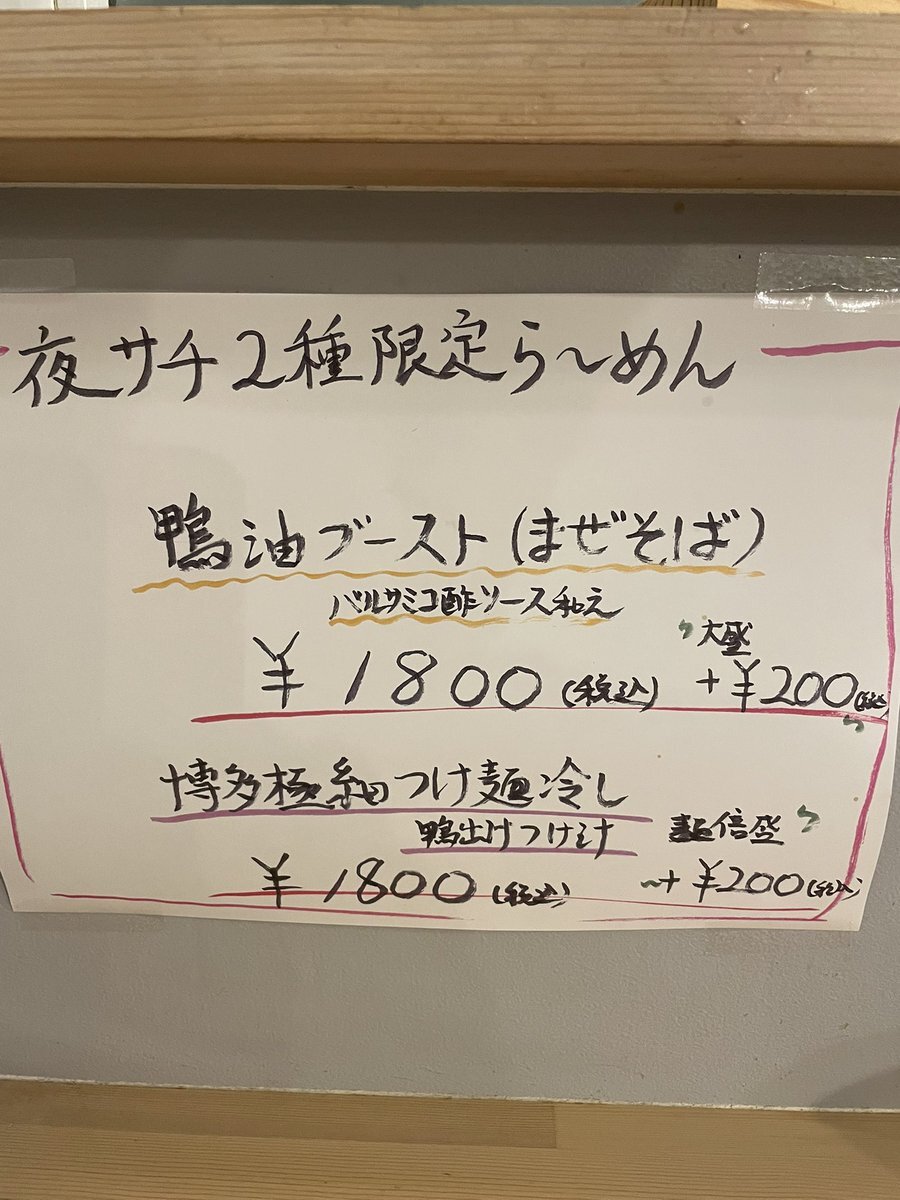 夜サチ2種限定らーめん
鴨油ブースト(まぜそば)
バルサミコ酢ソース和え
大盛
¥1800(税込) +¥200(税込)
博多極細つけ麺冷し
鴨出汁つけ汁 麺倍盛
¥1800(税込) +¥200(税込)